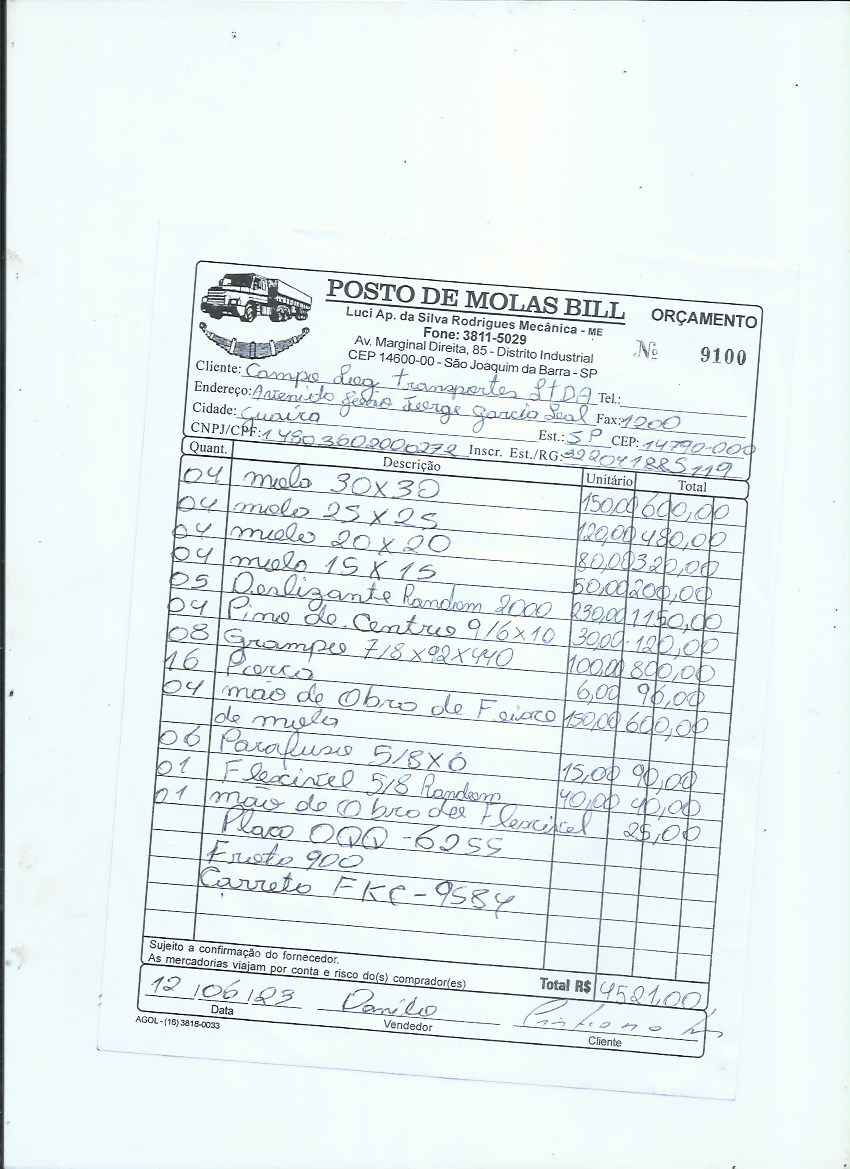 POSTO DE MOLAS BILL
ORÇAMENTO
Luci Ap. da Silva Rodrigues Mecânica - ME
Fone: 3811-5029
Av. Marginal Direita, 85 - Distrito Industrial
CEP 14600-00 - São Joaquim da Barra - SP
Nº 9100
Cliente: Campo Log Transportes LTDA Tel.:
Endereço: Avenida Jorge Garcia Leal Fax: 1200
Cidade: Guaíra Est.: SP CEP: 14790-000
CNPJ/CPF: Inscr. Est./RG: 322041885119
Quant. Descrição Unitário Total
04 mola 30x30 150,00 600,00
04 mola 25x25 120,00 480,00
04 mola 20x20 80,00 320,00
04 mola 15x15 50,00 200,00
05 Deslizante Random 2000 230,00 1150,00
04 Pino de Centro 9/6x10 30,00 120,00
08 Grampo 7/8x92x440 100,00 800,00
16 Porca 6,00 96,00
04 mão de Obra de Feixe 150,00 600,00
de mola
06 Parafuso 5/8x6 15,00 90,00
01 Flexivel 5/8 Random 40,00 40,00
01 mão de Obra do Flexivel 25,00
Placa OQQ-6255
Frota 900
Carreta FKC-9584
Sujeito a confirmação do fornecedor.
As mercadorias viajam por conta e risco do(s) comprador(es)
Total R$ 4521,00
12/06/23 Danilo
Data Vendedor Cliente
AGOL - (16) 3818-0033